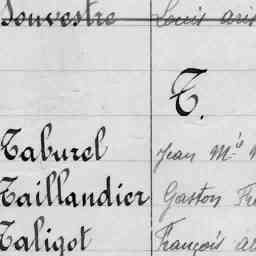 Souvestre Louis aris
T.
Taburel Jean M.ie
Taillandier Gaston Fr
Taligot François al